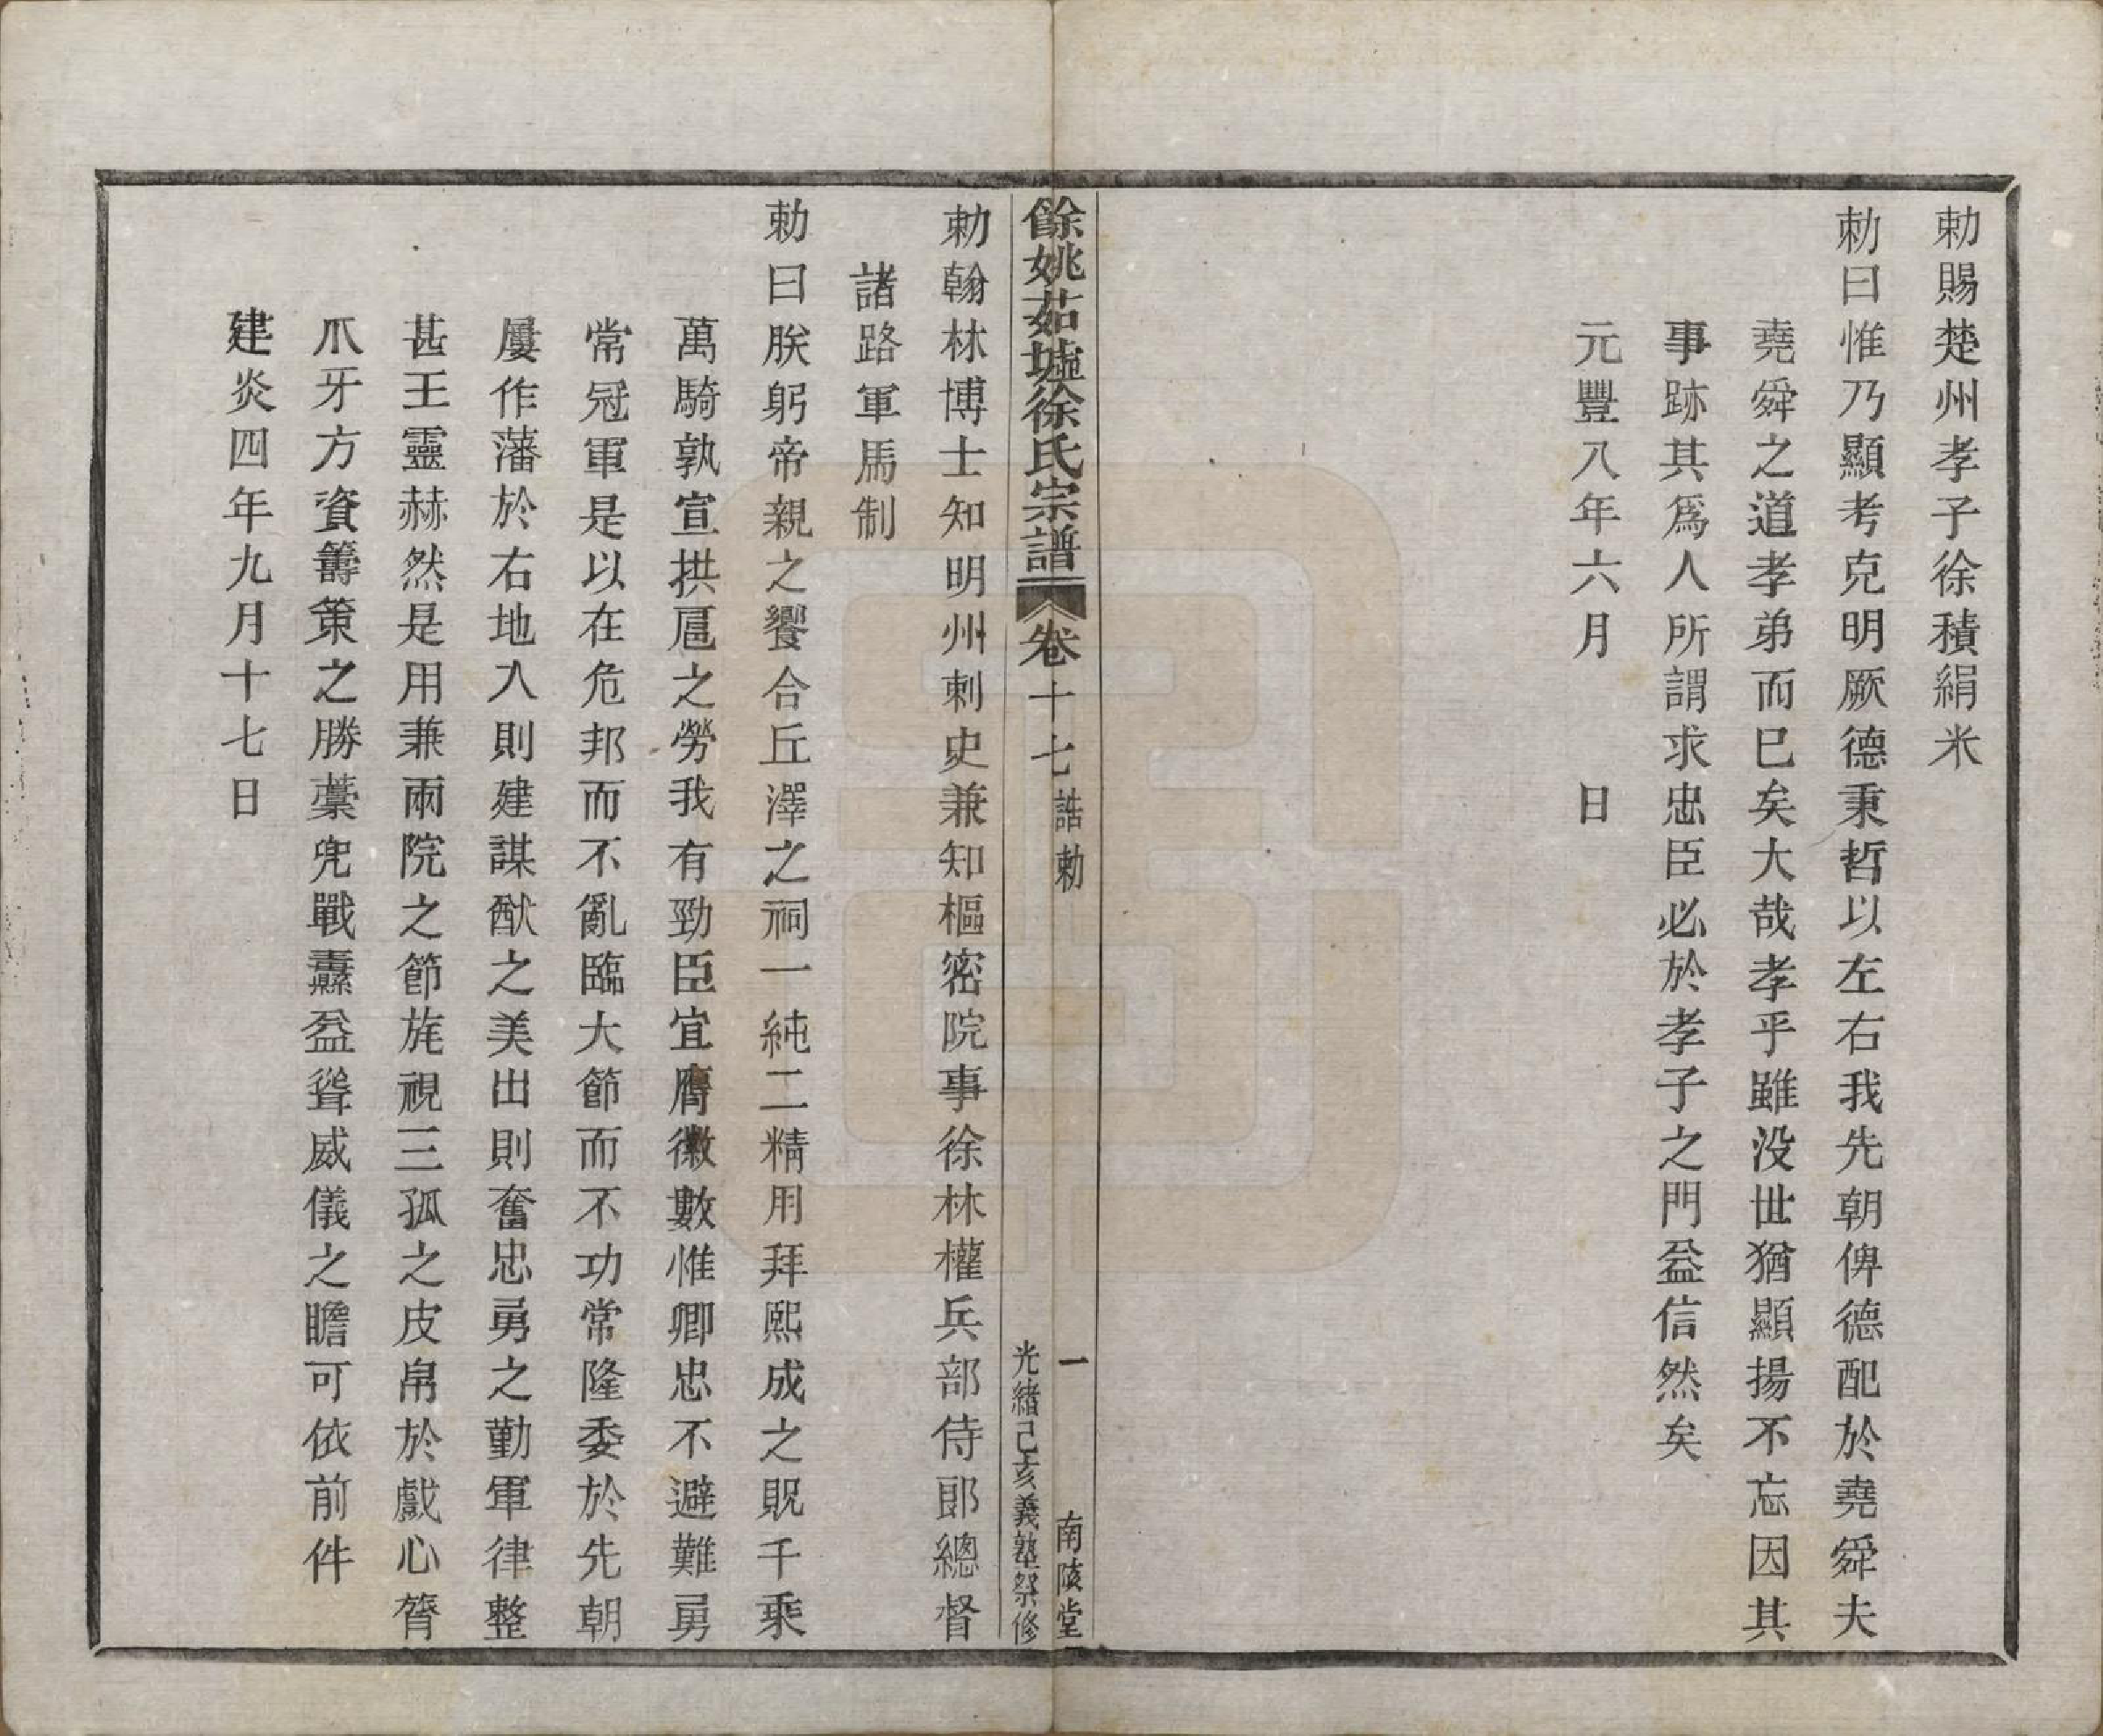 勅賜楚州孝子徐積絹米
勅曰惟乃顯考克明厥德秉哲以左右我先朝俾德配於堯舜夫
堯舜之道孝弟而已矣大哉孝乎雖没世猶顯揚不忘因其
事跡其爲人所謂求忠臣必於孝子之門益信然矣
元豐八年六月　　日
餘姚茹墟徐氏宗譜
卷十七 誥勅
一
南陔堂
光緒己亥義塾祭修
勅翰林博士知明州刺史兼知樞密院事徐林權兵部侍郎總督
諸路軍馬制
勅曰朕躬帝親之饗合丘澤之祠一純二精用拜熙成之貺千乘
萬騎孰宣拱扈之勞我有勁臣宜膺徽數惟卿忠不避難勇
常冠軍是以在危邦而不亂臨大節而不功常隆委於先朝
屢作藩於右地入則建謀猷之美出則奮忠勇之勤軍律整
甚王靈赫然是用兼兩院之節旄視三孤之皮帛於戲心膂
爪牙方資籌策之勝櫜兜戰纛益聳威儀之瞻可依前件
建炎四年九月十七日